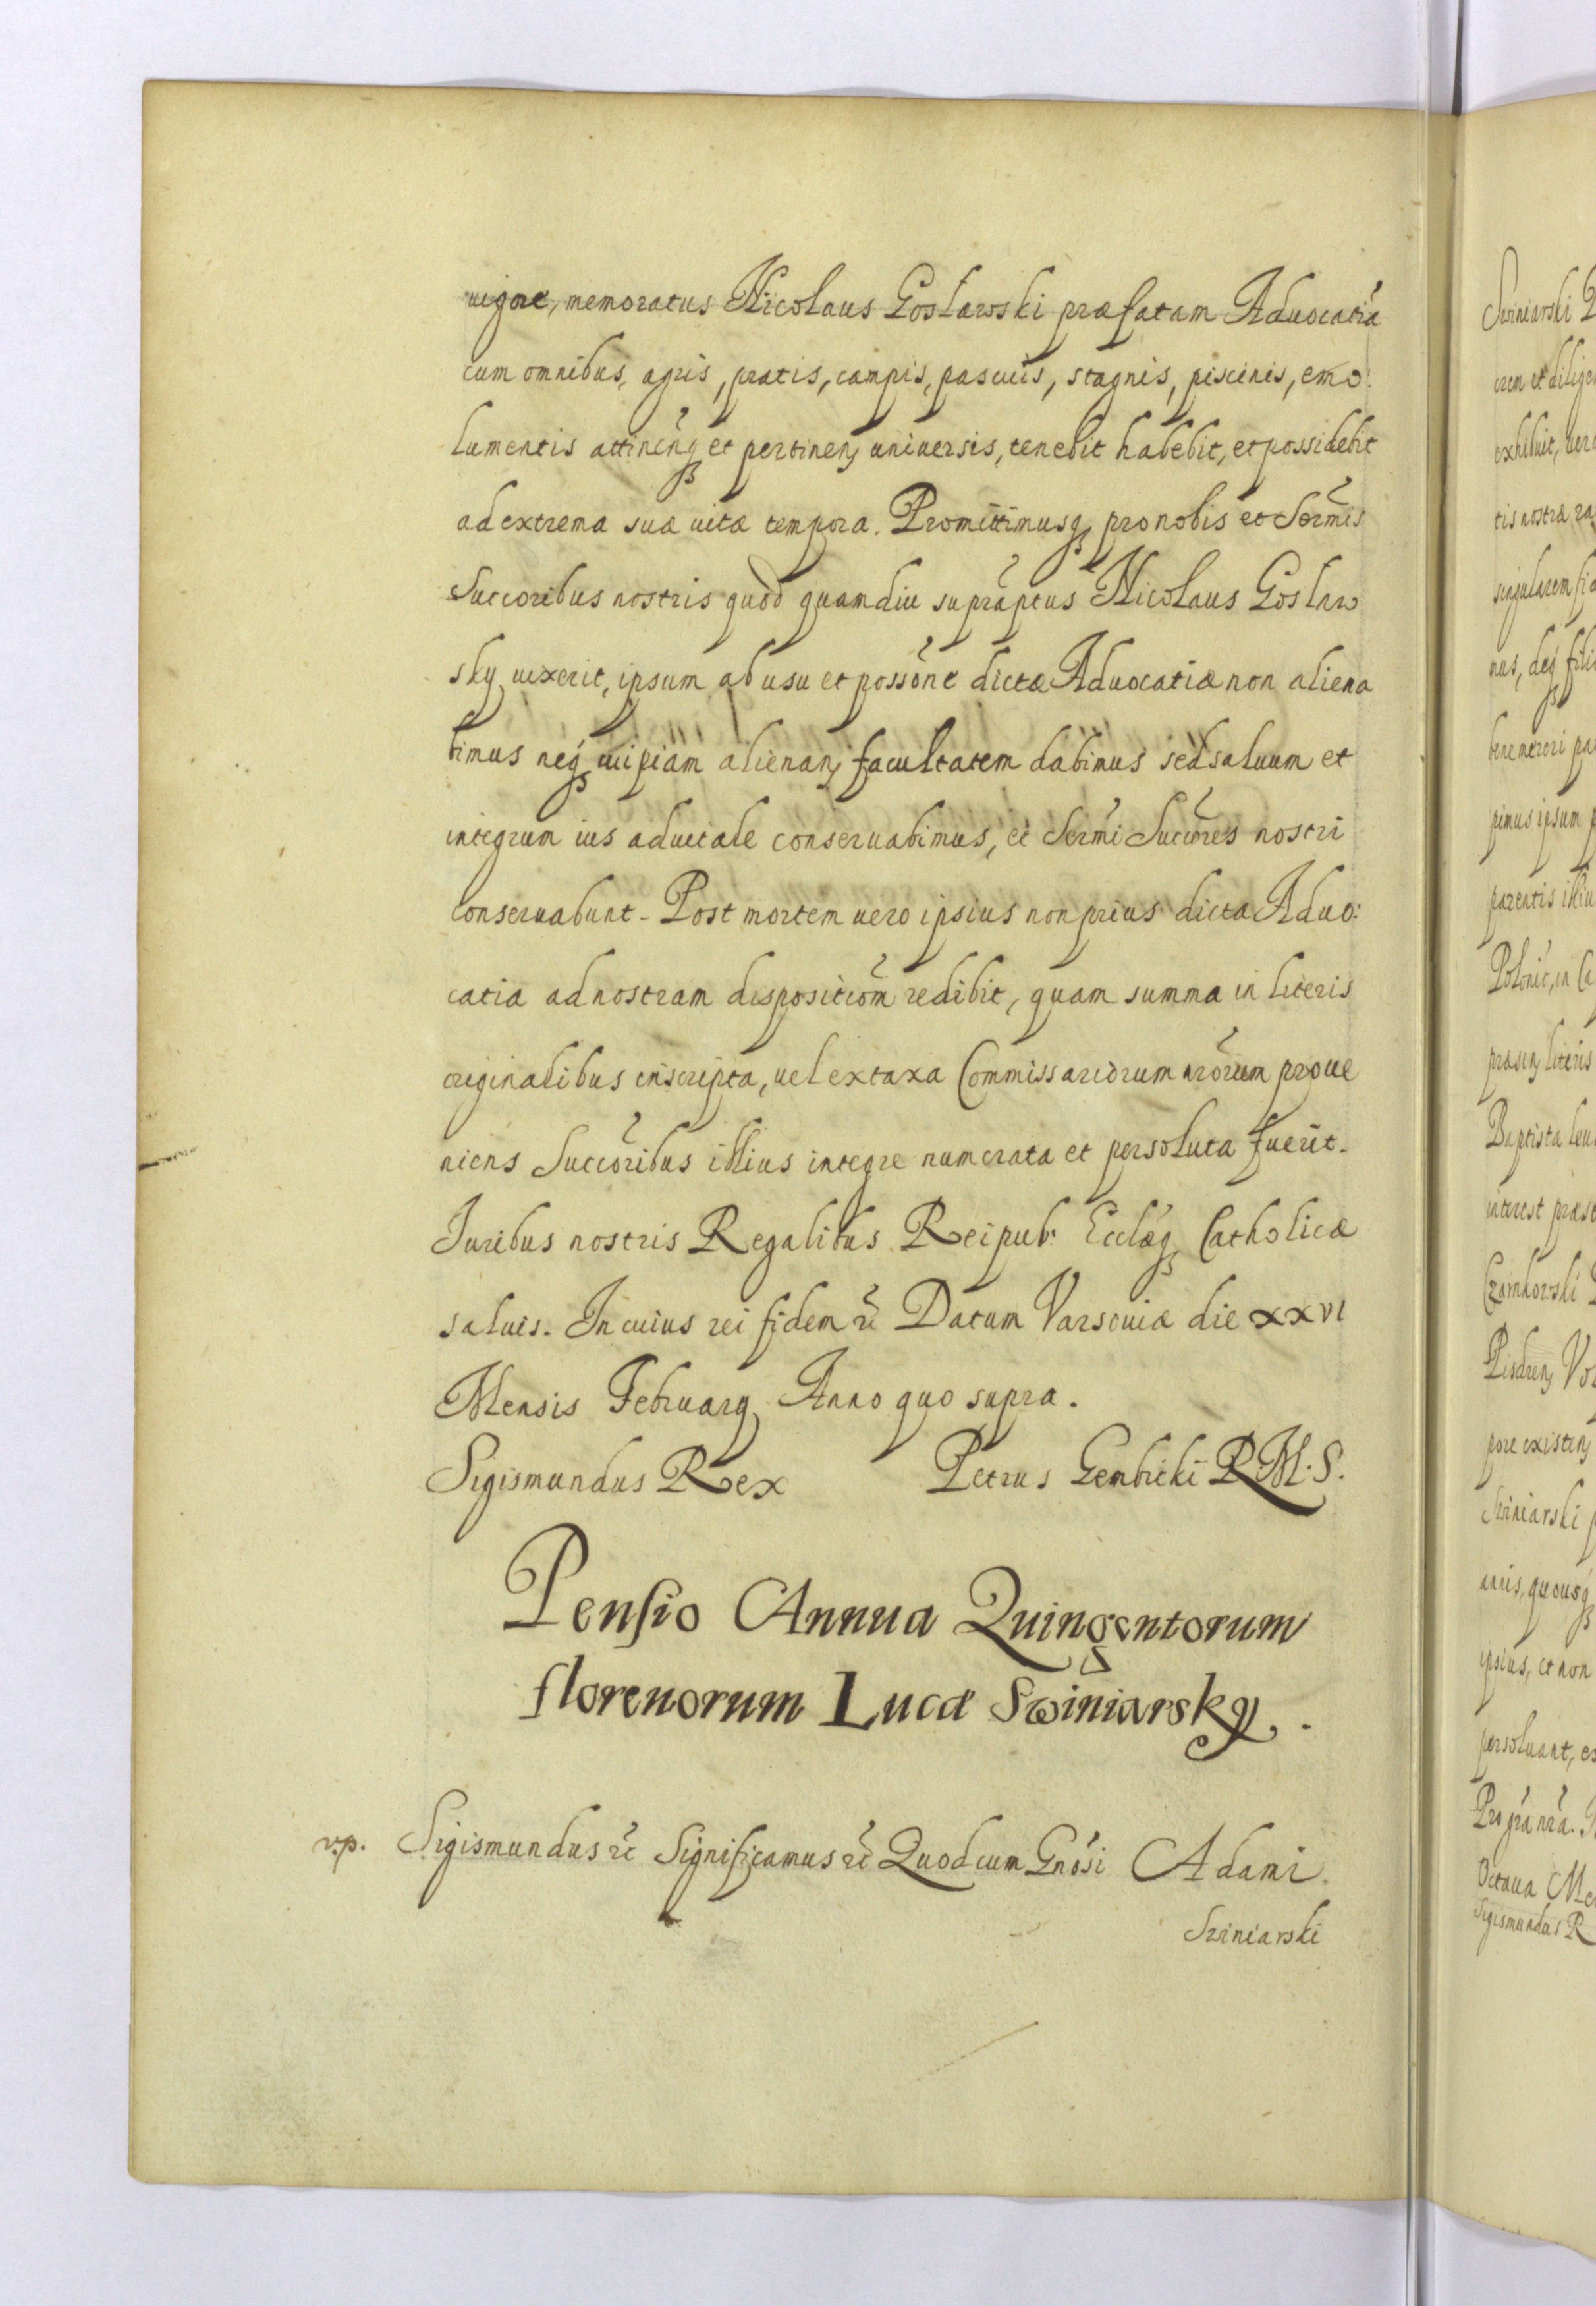 uigore, memoratus Nicolaus Goslawski præfatam Aduocatiã
cum omnibus, agris, pratis, campis, pascuis, stagnis, piscinis, emo:
lumentis attinen̄q₃ et pertinen₃ uniuersis, tenebit habebit, et possidebit
ad extrema suæ uitæ tempora. Promittimusq₃ pro nobis et Sermis
Succoribus nostris quod quamdiu supraptus Nicolaus Goslaw
sky uixerit, ipsum ab usu et possōne dictæ Aduocatiæ non aliena
bimus neq₃ cuipiam alienan₃ facultatem dabimus sed saluum et
integrum ius aduitale conseruabimus, et Sermi Succores nostri
conseruabunt. Post mortem uero ipsius non prius dicta Aduo:
catia ad nostram dispositiōm redibit, quam summa in literis
originalibus inscripta, uel ex taxa Commissariorum nrōrum proue
niens Succoribus illius integre numerata et persoluta fuerit.
Juribus nostris Regalibus Reipub: Ecclæq₃ Catholicæ
saluis. In cuius rei fidem &c̃ Datum Varsouiæ die XXVI
Mensis Februarÿ Anno quo supra.
Sigismundus Rex Petrus Gembicki R.M.S.
Pensio Annua Quingentorum
florenorum Lucæ Swiniarsky.
v.p. Sigismundus &c̃ Significamus &c̃ Quod cum Gnōsi Adami
Swiniarski
Swiniarski
exhibuit,
tis nostra
singularem
pimus ipsum
parentis illiu
præsen₃ literis
Baptista
interest præst
Czarnkowski
pore existen₃
Swiniarski
annis, quousq₃
ipsius, et non
persoluant,
Octaua Me
Sigismundus R